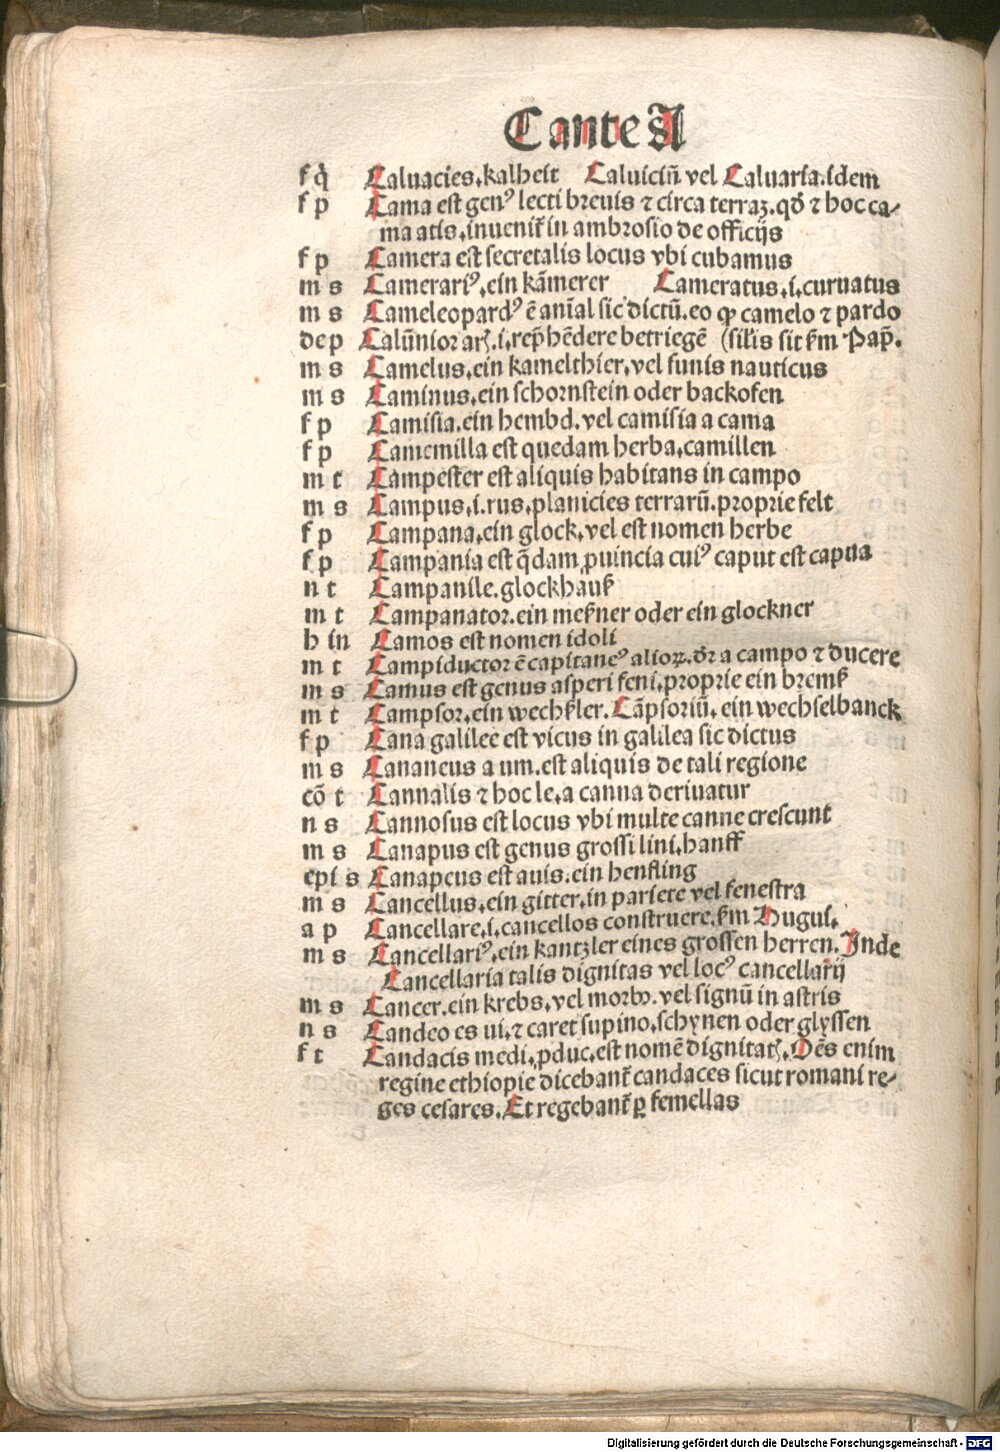 C ante A
f q̇ Caluacies.kalheit Caluiciū vel Caluaria.idem
f p Cama est genꝰ lecti breuis ⁊ circa terraꝫ.qđ ⁊ hoc ca⸗
ma atis.inuenit᷑ in ambrosio de officijs
f p Camera est secretalis locus vbi cubamus
m s Camerariꝰ.ein kāmerer Cameratus.i.curuatus
m s Cameleopardꝰ ē anīal sic dictū.eo ꝙ camelo ⁊ pardo
dep Calūnior arꝭ.i.rep̄hēdere betriegē (silis sit ẜm Pap̄.
m s Camelus.ein kamelthier.vel funis nauticus
m s Caminus.ein schornstein oder backofen
f p Camisia.ein hembd.vel camisia a cama
f p Camemilla est quedam herba.camillen
m t Campester est aliquis habitans in campo
m s Campus.i.rus.planicies terrarū.proprie felt
f p Campana.ein glock.vel est nomen herbe
f p Campania est q̄dam ꝓuincia cuiꝰ caput est capua
n t Campanile.glockhauß
m t Campanator.ein meßner oder ein glockner
h in Camos est nomen idoli
m t Campiductor ē capitaneꝰ alioꝝ.dr̄ a campo ⁊ ducere
m s Camus est genus asperi freni.proprie ein bremß
m t Campsor.ein wechßler.Cāpsoriū.ein wechselbanck
f p Cana galilee est vicus in galilea sic dictus
m s Cananeus a um.est aliquis de tali regione
cō t Cannalis ⁊ hoc le.a canna deriuatur
n s Cannosus est locus vbi multe canne crescunt
m s Canapus est genus grossi lini.hanff
epi s Canapeus est auis.ein henfling
m s Cancellus.ein gitter.in pariete vel fenestra
a p Cancellare.i.cancellos construere.ẜm Hugui.
m s Cancellariꝰ.ein kantzler eines grossen herren.Inde
Cancellaria talis dignitas vel locꝰ cancellarij
m s Cancer.ein krebs.vel morbꝰ.vel signū in astris
n s Candeo es ui.⁊ caret supino.schynen oder glyssen
f t Candacis medi.ꝓduc.est nomē dignitatꝭ.Oēs enim
regine ethiopie dicebant᷑ candaces sicut romani re⸗
ges cesares.Et regebant᷑ ꝑ femellas
Digitalisierung gefördert durch die Deutsche Forschungsgemeinschaft - DFG